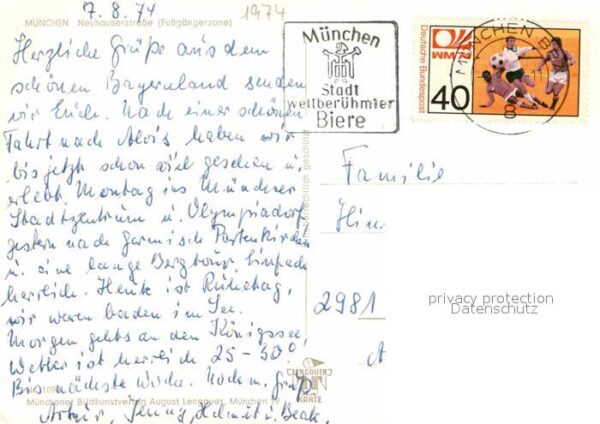 7.8.74
1974
MÜNCHEN Neuhauserstraße (Fußgängerzone)
Herzliche Grüße aus dem
schönen Bayernland senden
wir Euch. Nach einer schönen
Fahrt nach Alois haben wir
bis jetzt schon viel gesehen u.
erlebt. Montag ins Münchner
Stadtzentrum u. Olympiadorf,
gestern nach Garmisch Partenkirchen
u. eine lange Bergtour. Einfach
herrlich. Heute ist Ruhetag,
wir waren baden im See.
Morgen gehts an den Königssee,
Wetter ist herrlich 25-30°
Bis nächste Woche. Nochm. Grüße
Artur, Jenny, Helmut u. Beate,
Münchener Bildkunstverlag August Lengauer, München 19
München
Stadt
weltberühmter
Biere
MÜNCHEN
Deutsche Bundespost
WM 74
40
Familie
2981
privacy protection
Datenschutz
KARTE